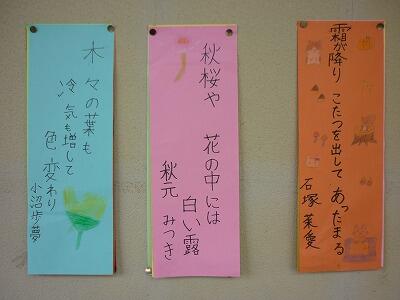 霜が降り こたつを出して あったまる
石塚菜愛
秋桜や 花の中には
白い露
秋元 みつき
木々の葉も
冷気も増して
色変わり
小沼歩夢